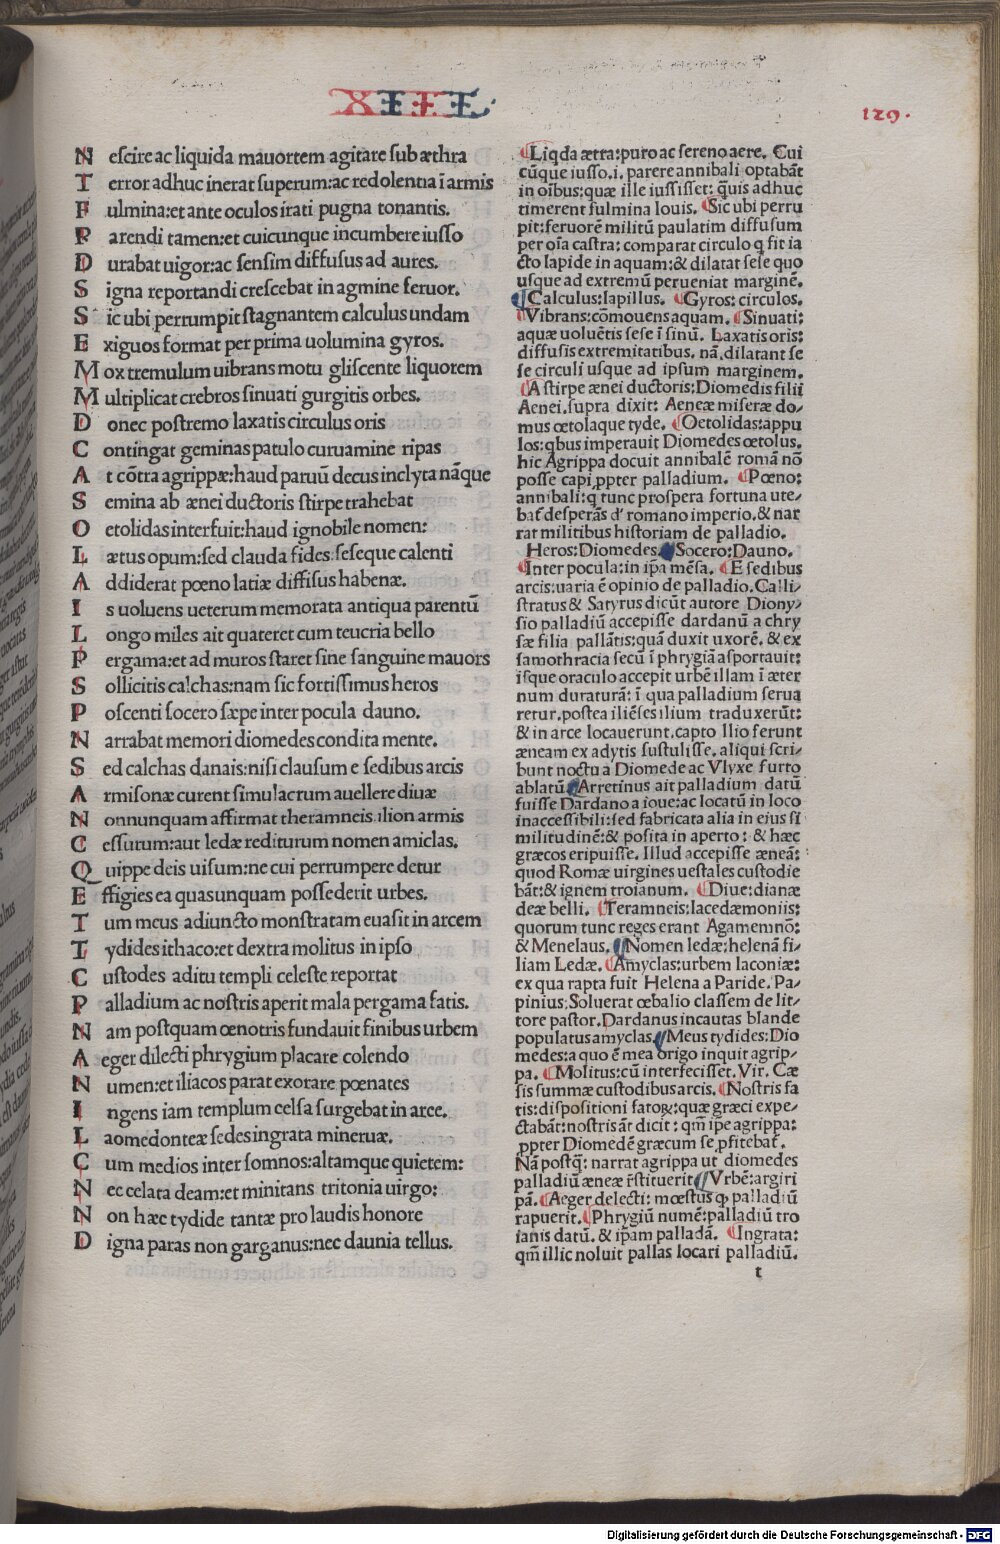 XIIII
129.
N escire ac liquida mauortem agitare sub æthra
T error adhuc inerat superum:ac redolentia ī armis
F ulmina:et ante oculos irati pugna tonantis.
P arendi tamen:et cuicunque incumbere iusso
D urabat uigor:ac sensim diffusus ad aures.
S igna reportandi crescebat in agmine feruor.
S ic ubi perrumpit stagnantem calculus undam
E xiguos format per prima uolumina gyros.
M ox tremulum uibrans motu gliscente liquorem
M ultiplicat crebros sinuati gurgitis orbes.
D onec postremo laxatis circulus oris
C ontingat geminas patulo curuamine ripas
A t cōtra agrippæ:haud paruū decus inclyta nāque
S emina ab ænei ductoris stirpe trahebat
O etolidas interfuit:haud ignobile nomen:
L ætus opum:sed clauda fides seseque calenti
A ddiderat pœno latiæ diffisus habenæ.
I s uoluens ueterum memorata antiqua parentū
L ongo miles ait quateret cum teucria bello
P ergama:et ad muros staret sine sanguine mauors
S ollicitis calchas:nam sic fortissimus heros
P oscenti socero sæpe inter pocula dauno.
N arrabat memori diomedes condita mente.
S ed calchas danais:nisi clausum e sedibus arcis
A rmisonæ curent simulacrum auellere diuæ
N onnunquam affirmat theramneis ilion armis
C essurum:aut ledæ rediturum nomen amiclas.
Q uippe deis uisum:ne cui perrumpere detur
E ffigies ea quas unquam possederit urbes.
T um meus adiuncto monstratam euasit in arcem
T ydides ithaco:et dextra molitus in ipso
C ustodes aditu templi celeste reportat
P alladium ac nostris aperit mala pergama fatis.
N am postquam œnotris fundauit finibus urbem
A eger dilecti phrygium placare colendo
N umen:et iliacos parat exorare pœnates
I ngens iam templum celsa surgebat in arce.
L aomedonteæ sedes ingrata mineruæ.
C um medios inter somnos:altamque quietem:
N ec celata deam:et minitans tritonia uirgo:
N on hæc tydide tantæ pro laudis honore
D igna paras non garganus:nec daunia tellus.
Liqda ætra:puro ac sereno aere. Cui
cūque iusso.i. parere annibali optabāt
in oībus:quæ ille iussisset: quis adhuc
timerent fulmina Iouis. Sic ubi perru
pit:feruorē militū paulatim diffusum
per oīa castra: comparat circulo q fit ia
cto lapide in aquam:& dilatat sese quo
usque ad extremū perueniat marginē.
Calculus:lapillus. Gyros: circulos.
Vibrans:cōmouens aquam. Sinuati:
aquæ uoluētis sese ī sinū. Laxatis oris:
diffusis extremitatibus. nā, dilatant se
se circuli usque ad ipsum marginem.
A stirpe ænei ductoris:Diomedis filii
Aenei.supra dixit: Aeneæ miseræ do-
mus œtolaque tyde. Oetolidas:appu
los:qbus imperauit Diomedes œtolus.
hic Agrippa docuit annibalē romā nō
posse capi ppter palladium. Pœno:
annibali:q tunc prospera fortuna ute-
bat desperās d' romano imperio.& nar
rat militibus historiam de palladio.
Heros:Diomedes. Socero:Dauno.
Inter pocula:in ipa mēsa. E sedibus
arcis:uaria ē opinio de palladio.Calli-
stratus & Satyrus dicūt autore Diony-
sio palladiū accepisse dardanū a chry
sæ filia pallātis:quā duxit uxorē. & ex
samothracia secū ī phrygiā asportauit:
isque oraculo accepit urbē illam ī æter
num duraturā: ī qua palladium serua
retur.postea iliēses ilium traduxerūt:
& in arce locauerunt.capto Ilio ferunt
æneam ex adytis sustulisse. aliqui scri-
bunt noctu a Diomede ac Vlyxe furto
ablatū Arretinus ait palladium datū
fuisse Dardano a ioue:ac locatū in loco
inaccessibili:sed fabricata alia in eius si
militudinē:& posita in aperto: & hæc
græcos eripuisse. Illud accepisse æneā:
quod Romæ uirgines uestales custodie
bāt:& ignem troianum. Diue:dianæ
deæ belli. Teramneis:lacedæmoniis:
quorum tunc reges erant Agamemnō:
& Menelaus. Nomen ledæ:helenā fi-
liam Ledæ. Amyclas:urbem laconiæ:
ex qua rapta fuit Helena a Paride. Pa-
pinius. Soluerat œbalio classem de lit-
tore pastor.Dardanus incautas blande
populatus amyclas. Meus tydides:Dio
medes:a quo ē mea origo inquit agrip-
pa. Molitus:cū interfecisset. Vir. Cæ
sis summæ custodibus arcis. Nostris fa
tis:dispositioni fatoꝝ:quæ græci expe-
ctabāt:nostris āt dicit: qm̄ ipe agrippa:
ppter Diomedē græcum se pfitebat.
Nā postq̄: narrat agrippa ut diomedes
palladiū æneæ rstituerit Vrbē:argiri
pā. Aeger delecti: mœstus q palladiū
rapuerit. Phrygiū numē:palladiū tro
ianis datū. & ipam palladā. Ingrata:
qm̄ illic noluit pallas locari palladiū.
t
Digitalisierung gefördert durch die Deutsche Forschungsgemeinschaft - DFG